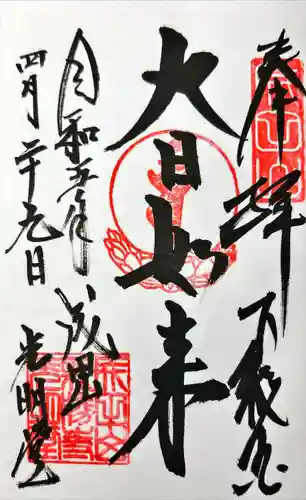 奉拝 下総国
大日如来
令和五年 成田山
四月二十九日 光明堂